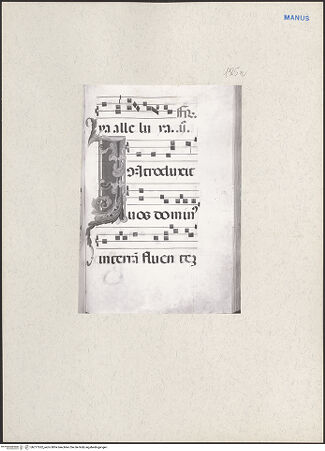 MANUS
195a
ya alle lu ya. ℣.
INtroduxit
uos domin⁹
in terrā fluen tez